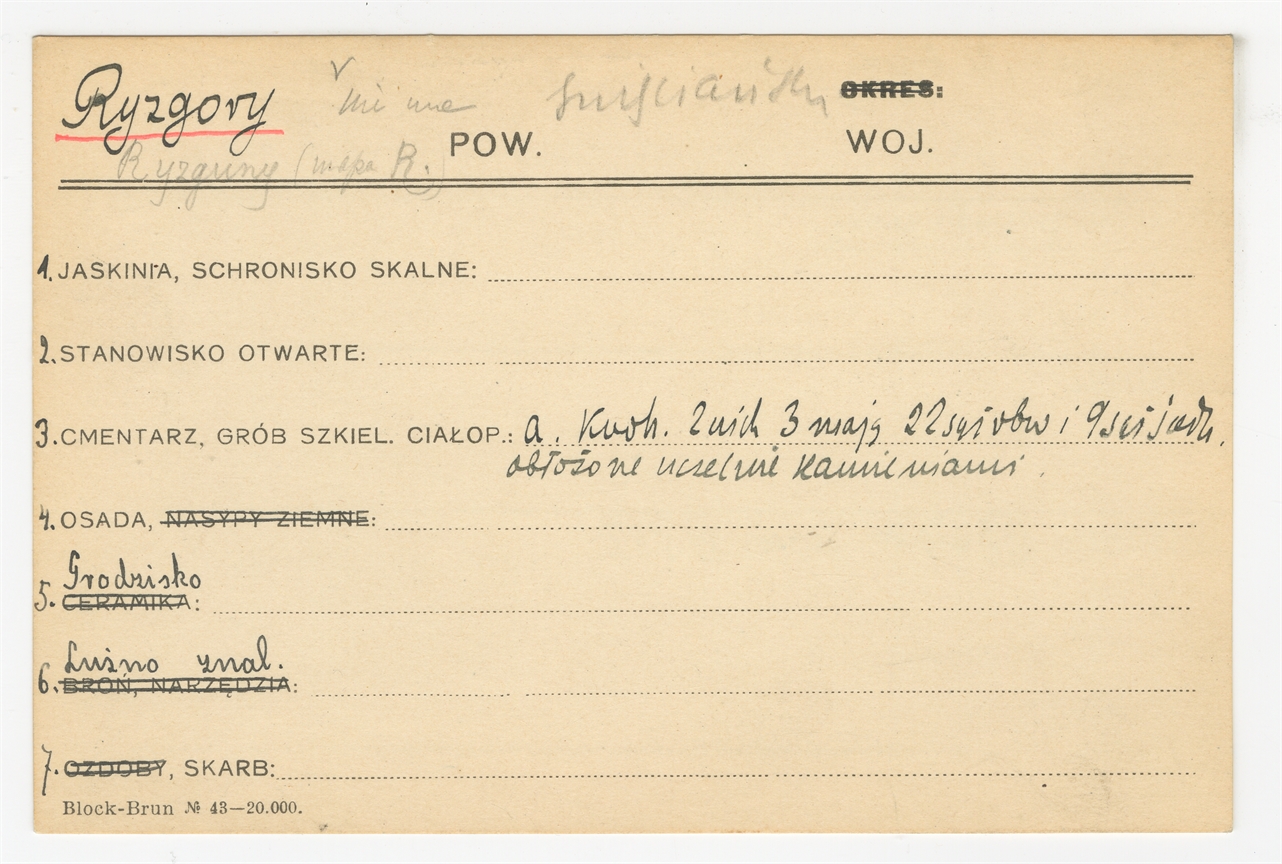 Ryzgory nie ma święciański OKRES:
POW. WOJ.
Ryzguny (mapa R.)
1. JASKINIA, SCHRONISKO SKALNE:
2. STANOWISKO OTWARTE:
3. CMENTARZ, GRÓB SZKIEL. CIAŁOP.: a. Kurh. Z nich 3 mają 22 sąż obw i 9 sąż
obłożone szczelnie kamieniami.
4. OSADA, NASYPY ZIEMNE:
Grodzisko
5. CERAMIKA:
Luźno znal.
6. BROŃ, NARZĘDZIA:
7. OZDOBY, SKARB:
Block-Brun № 43—20.000.